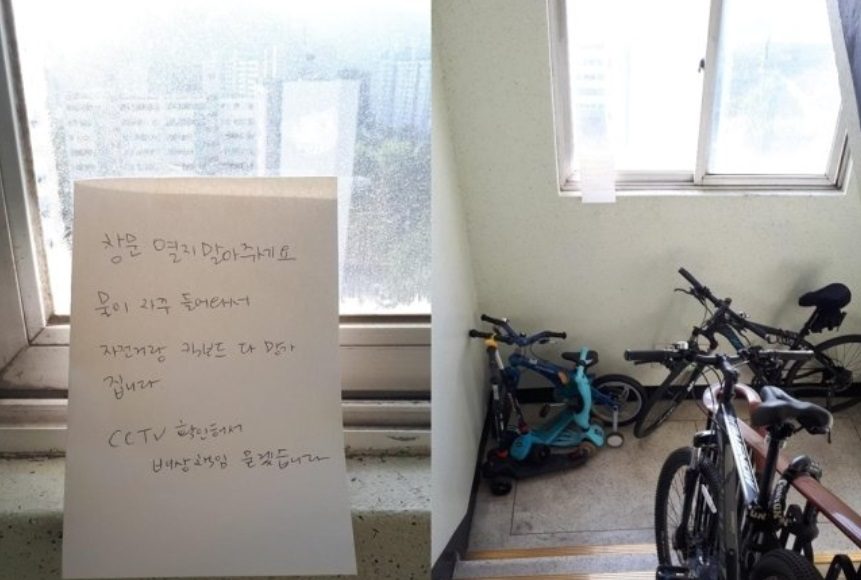 창문 열지말아주세요
물이 자주 들어와서
자전거랑 킥보드 다 망가
집니다
CCTV 확인해서
배상책임 묻겠습니다